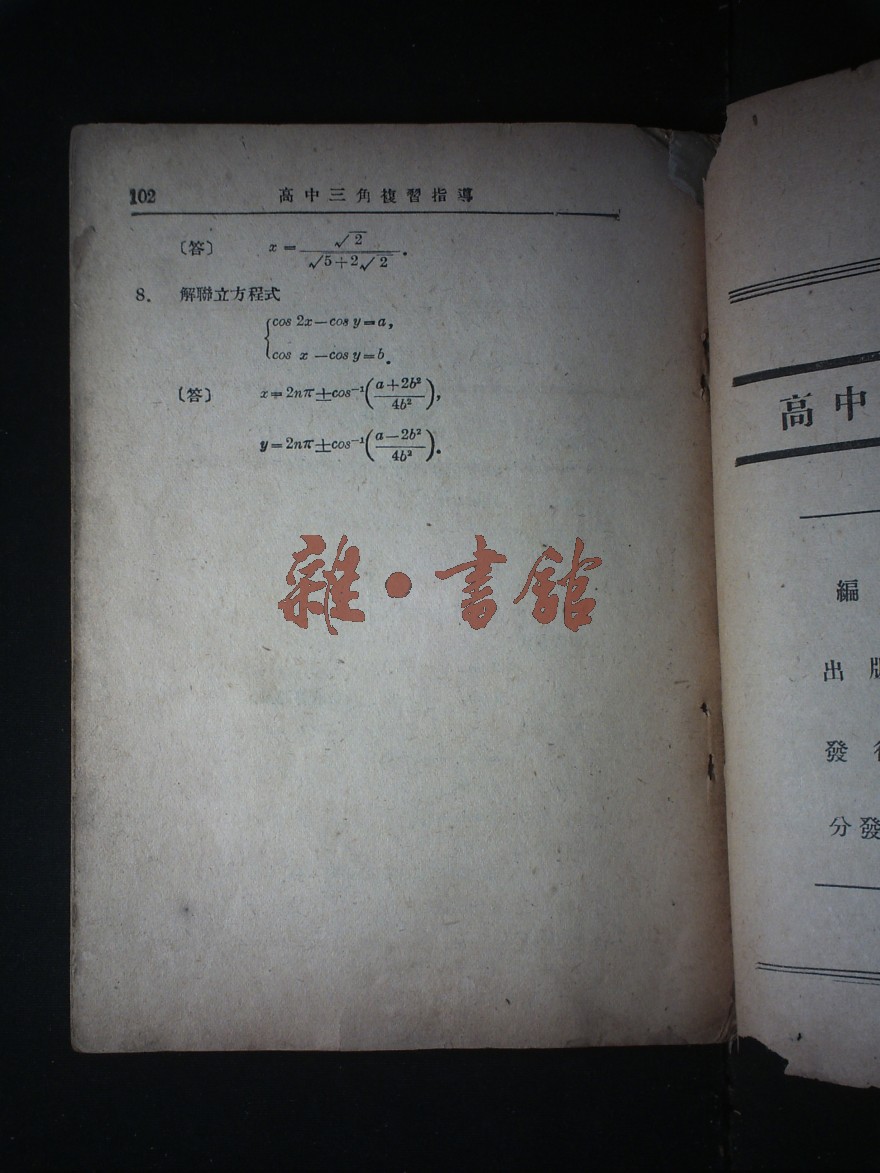 102 高中三角複習指導
〔答〕 x = √2 / √5+2√2 .
8. 解聯立方程式
{cos 2x—cos y=a,
cos x —cos y=b.
〔答〕 x=2nπ±cos⁻¹((a+2b²)/4b²),
y=2nπ±cos⁻¹((a−2b²)/4b²).
雜·書館
高中
編
出版
發
分發